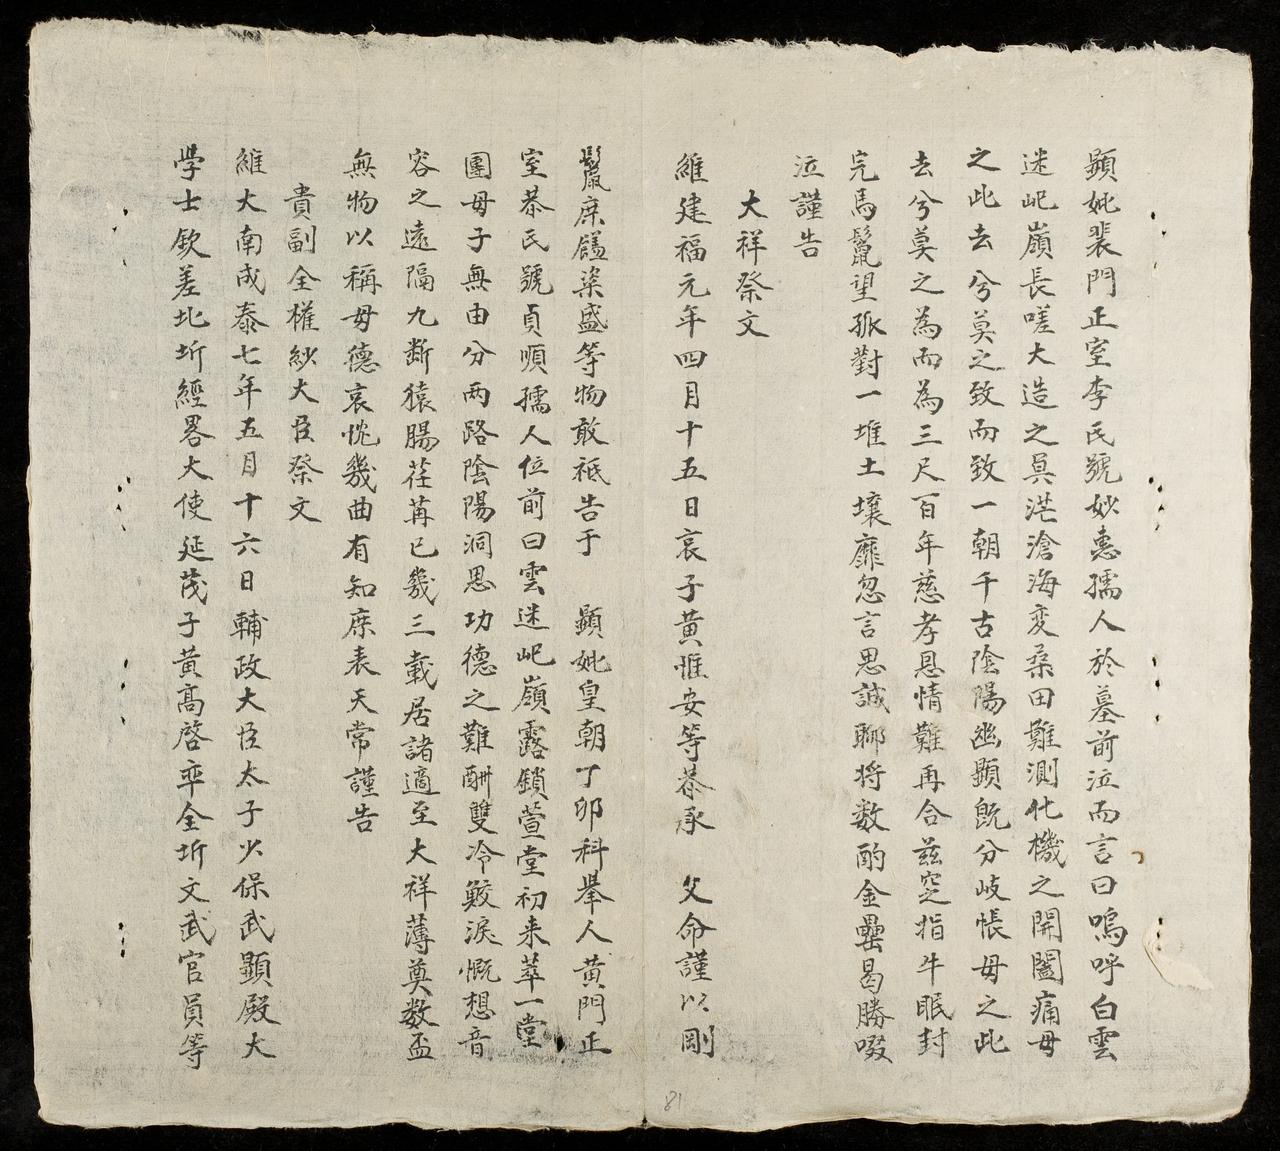 顕妣裴門正室李氏號妙惠孺人於墓前泣而言曰嗚呼白雲
迷屺嶺長嗟大造之冥茫滄海変桑田難測化機之開闔痛母
之此去兮莫之致而致一朝千古陰陽幽顕既分岐悵母之此
去兮莫之為而為三尺百年慈孝恩情難再合兹窆指牛眠封
完馬鬣望孤對一堆土壤靡忽言思誠聊将数酌金罍曷勝啜
泣謹告
大祥祭文
維建福元年四月十五日哀子黄惟安等恭承 父命謹以剛
鬣庶饈粢盛等物敢祗告于 顕妣皇朝丁卯科舉人黄門正
室恭氏號貞順孺人位前曰雲迷屺嶺露鎖萱堂初来萃一堂
團母子無由分两路陰陽洞思功德之難酬雙冷鮫淚慨想音
容之遠隔九断猿腸荏苒已幾三載居諸適至大祥薄奠数盃
無物以稱母德哀忱幾曲有知庶表天常謹告
貴副全權紗大臣祭文
維大南成泰七年五月十六日輔政大臣太子少保武顕殿大
學士欽差北圻經畧大使延茂子黄髙啓率全圻文武官員等
81